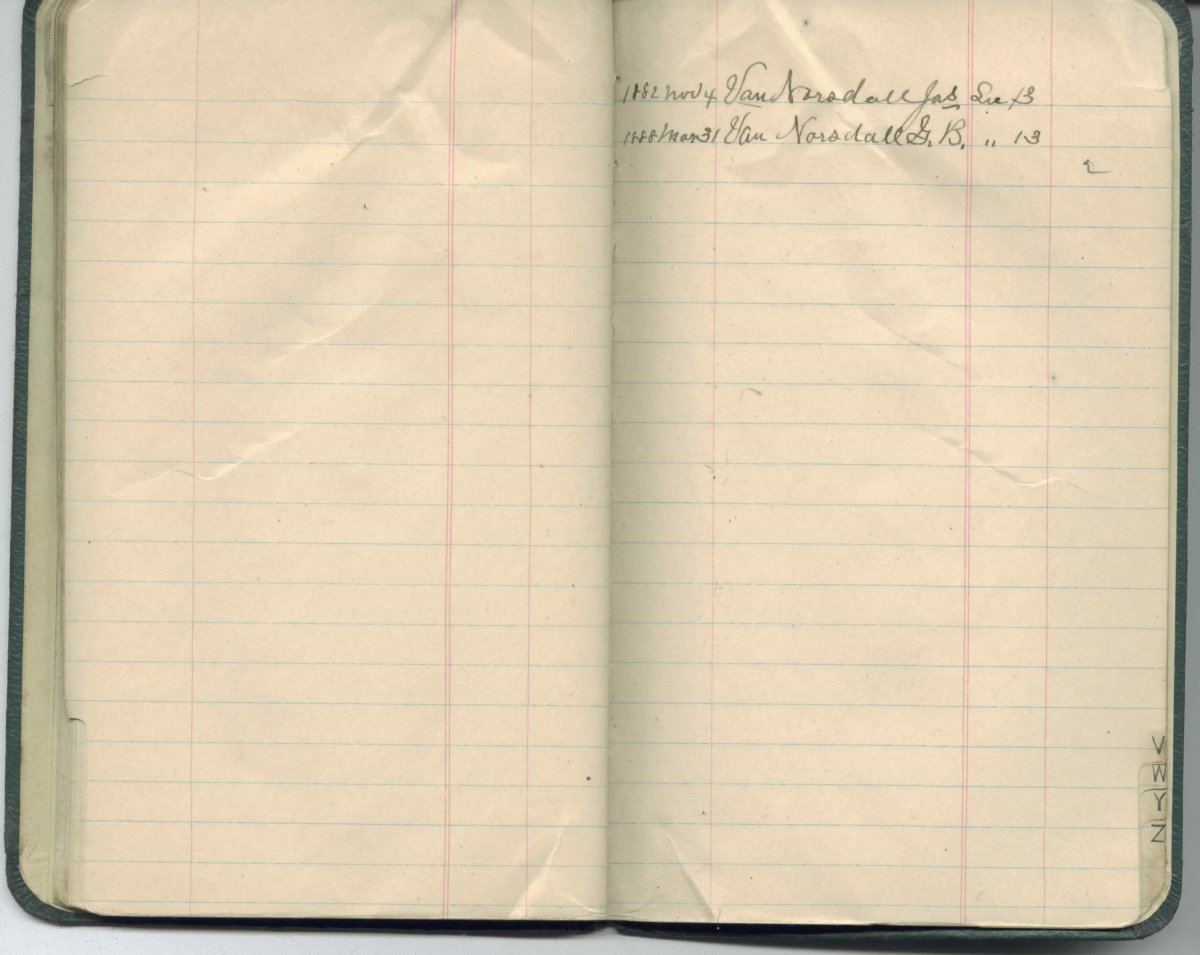 1882 Nov 4 Van Norsdall Jas Lie 13
1888 Mar 31 Van Norsdall G. B. " 13
2
V
W
Y
Z